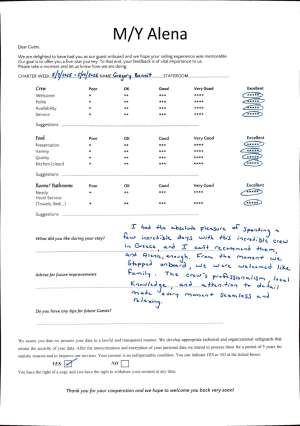 M/Y Alena
Dear Guest,
We are delighted to have had you as our guest onboard and we hope your sailing experience was memorable.
Our goal is to offer you a five star stay. To that end, your feedback is of vital importance to us.
Please take a moment and let us know how we are doing.
CHARTER WEEK: NAME: Gregory STATEROOM:
Crew Poor OK Good Very Good Excellent
Welcome * ** *** **** *****
Polite * ** *** **** *****
Availability * ** *** **** *****
Service * ** *** **** *****
Suggestions:
Food Poor OK Good Very Good Excellent
Presentation * ** *** **** *****
Variety * ** *** **** *****
Quality * ** *** **** *****
Kitchen Island * ** *** **** *****
Suggestions:
Rooms/ Bathrooms Poor OK Good Very Good Excellent
Beauty * ** *** **** *****
Hotel Service * ** *** **** *****
(Towels, Bed...) * ** *** **** *****
Suggestions:
I had the absolute pleasure of spending a
few incredible days with this incredible crew
in Greece and I can't recommend them,
What did you like during your stay?
and Alena, enough. From the moment we
stepped onboard, we were welcomed like
family. The crew's professionalism, local
Advise for future improvements
knowledge, and attention to detail
made every moment seamless and
relaxing.
Do you have any tips for future Guests?
We assure you that we process your data in a lawful and transparent manner. We develop appropriate technical and organizational safeguards that
ensure the security of your data. After the anonymization and encryption of your personal data we intend to process them for a period of 5 years for
statistic reasons and to improve our services. Your consent is an indispensable condition. You can indicate YES or NO at the linked boxes.
YES NO
You have the right of a copy and you have the right to withdraw your consent at any time.
Thank you for your cooperation and we hope to welcome you back very soon!